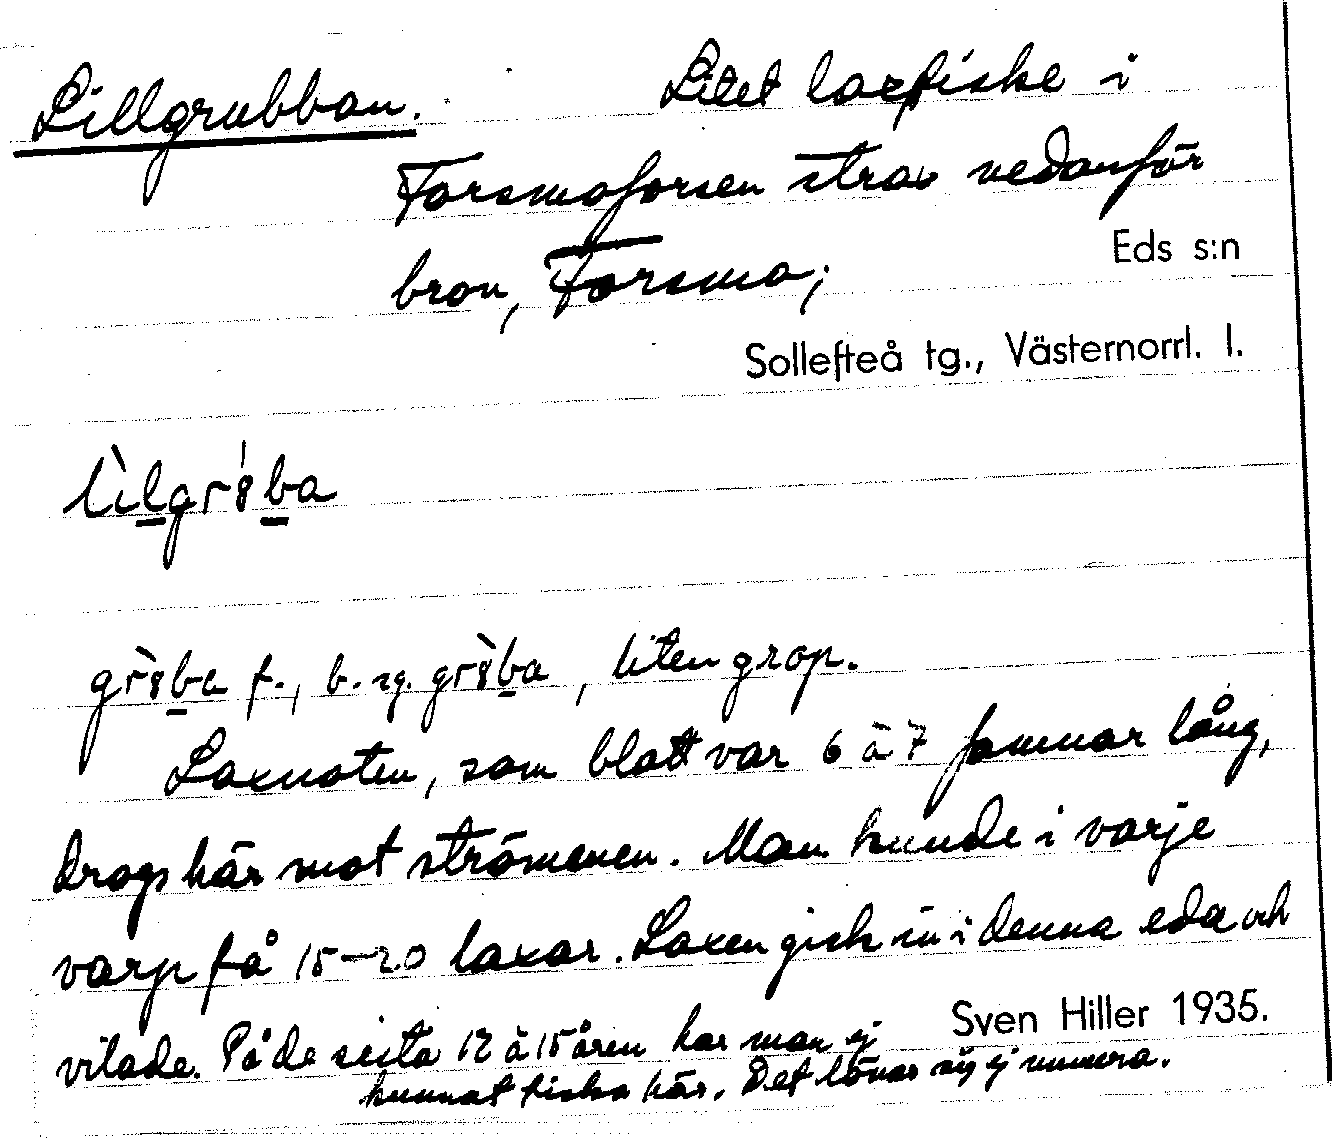 Lillgrubban. Litet laxfiske i
Forsmoforsen strax nedanför
Eds s:n
bron, Forsmo;
Sollefteå tg., Västernorrl. l.
lìlgr8́ba
gr8̀ba f., b. sg. gr8̀ba, liten grop.
Laxnoten, som blott var 6 à 7 famnar lång,
drogs här mot strömmen. Man kunde i varje
varp få 15-20 laxar. Laxen gick in i denna eda och
Sven Hiller 1935.
vilade. På de sista 12 à 15 åren har man ej
kunnat fiska här. Det lönar sig ej numera.